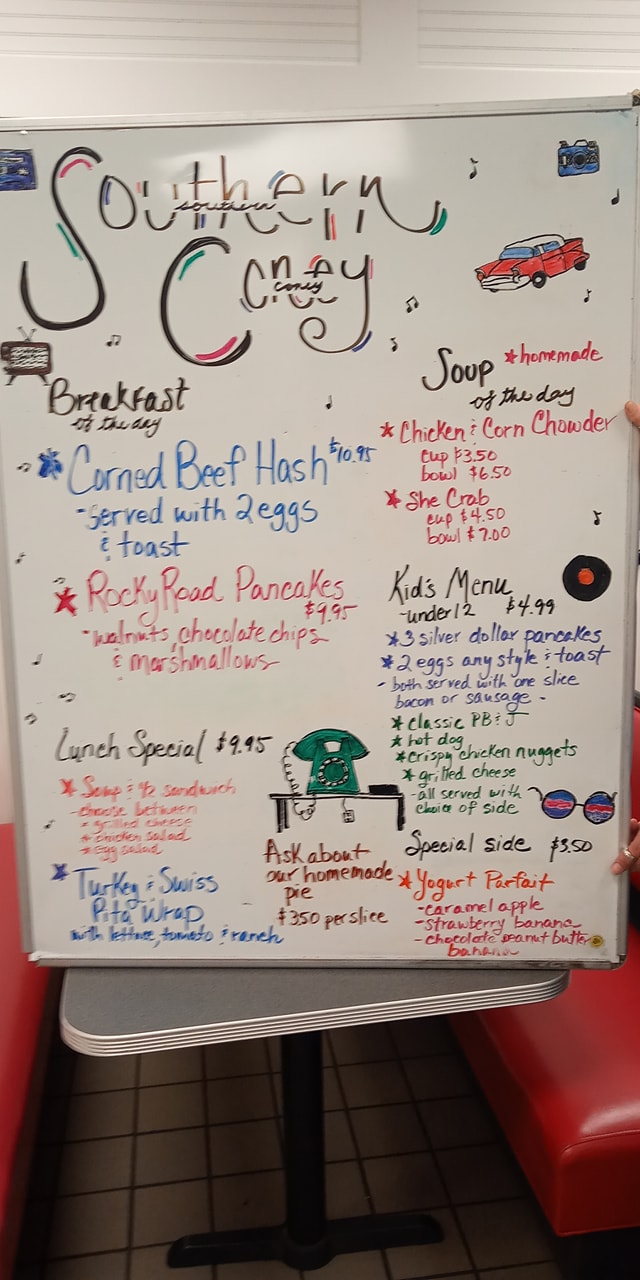 Southern
southern
Coney
coney
Breakfast
of the day
* Corned Beef Hash $10.95
- served with 2 eggs
& toast
* Rocky Road Pancakes
$9.95
- walnuts, chocolate chips
& marshmallows
Lunch Special $9.95
* Soup & 1/2 sandwich
- choose between
* grilled cheese
* chicken salad
* egg salad
* Turkey & Swiss
Pita Wrap
with lettuce, tomato & ranch
Soup *homemade
of the day
* Chicken & Corn Chowder
cup $3.50
bowl $6.50
* She Crab
cup $4.50
bowl $7.00
Kid's Menu
- under 12 $4.99
* 3 silver dollar pancakes
* 2 eggs any style & toast
- both served with one slice
bacon or sausage -
* classic PB & J
* hot dog
* crispy chicken nuggets
* grilled cheese
- all served with
choice of side
Ask about
our homemade
pie
$3.50 per slice
Special side $3.50
* Yogurt Parfait
- caramel apple
- strawberry banana
- chocolate peanut butter
banana